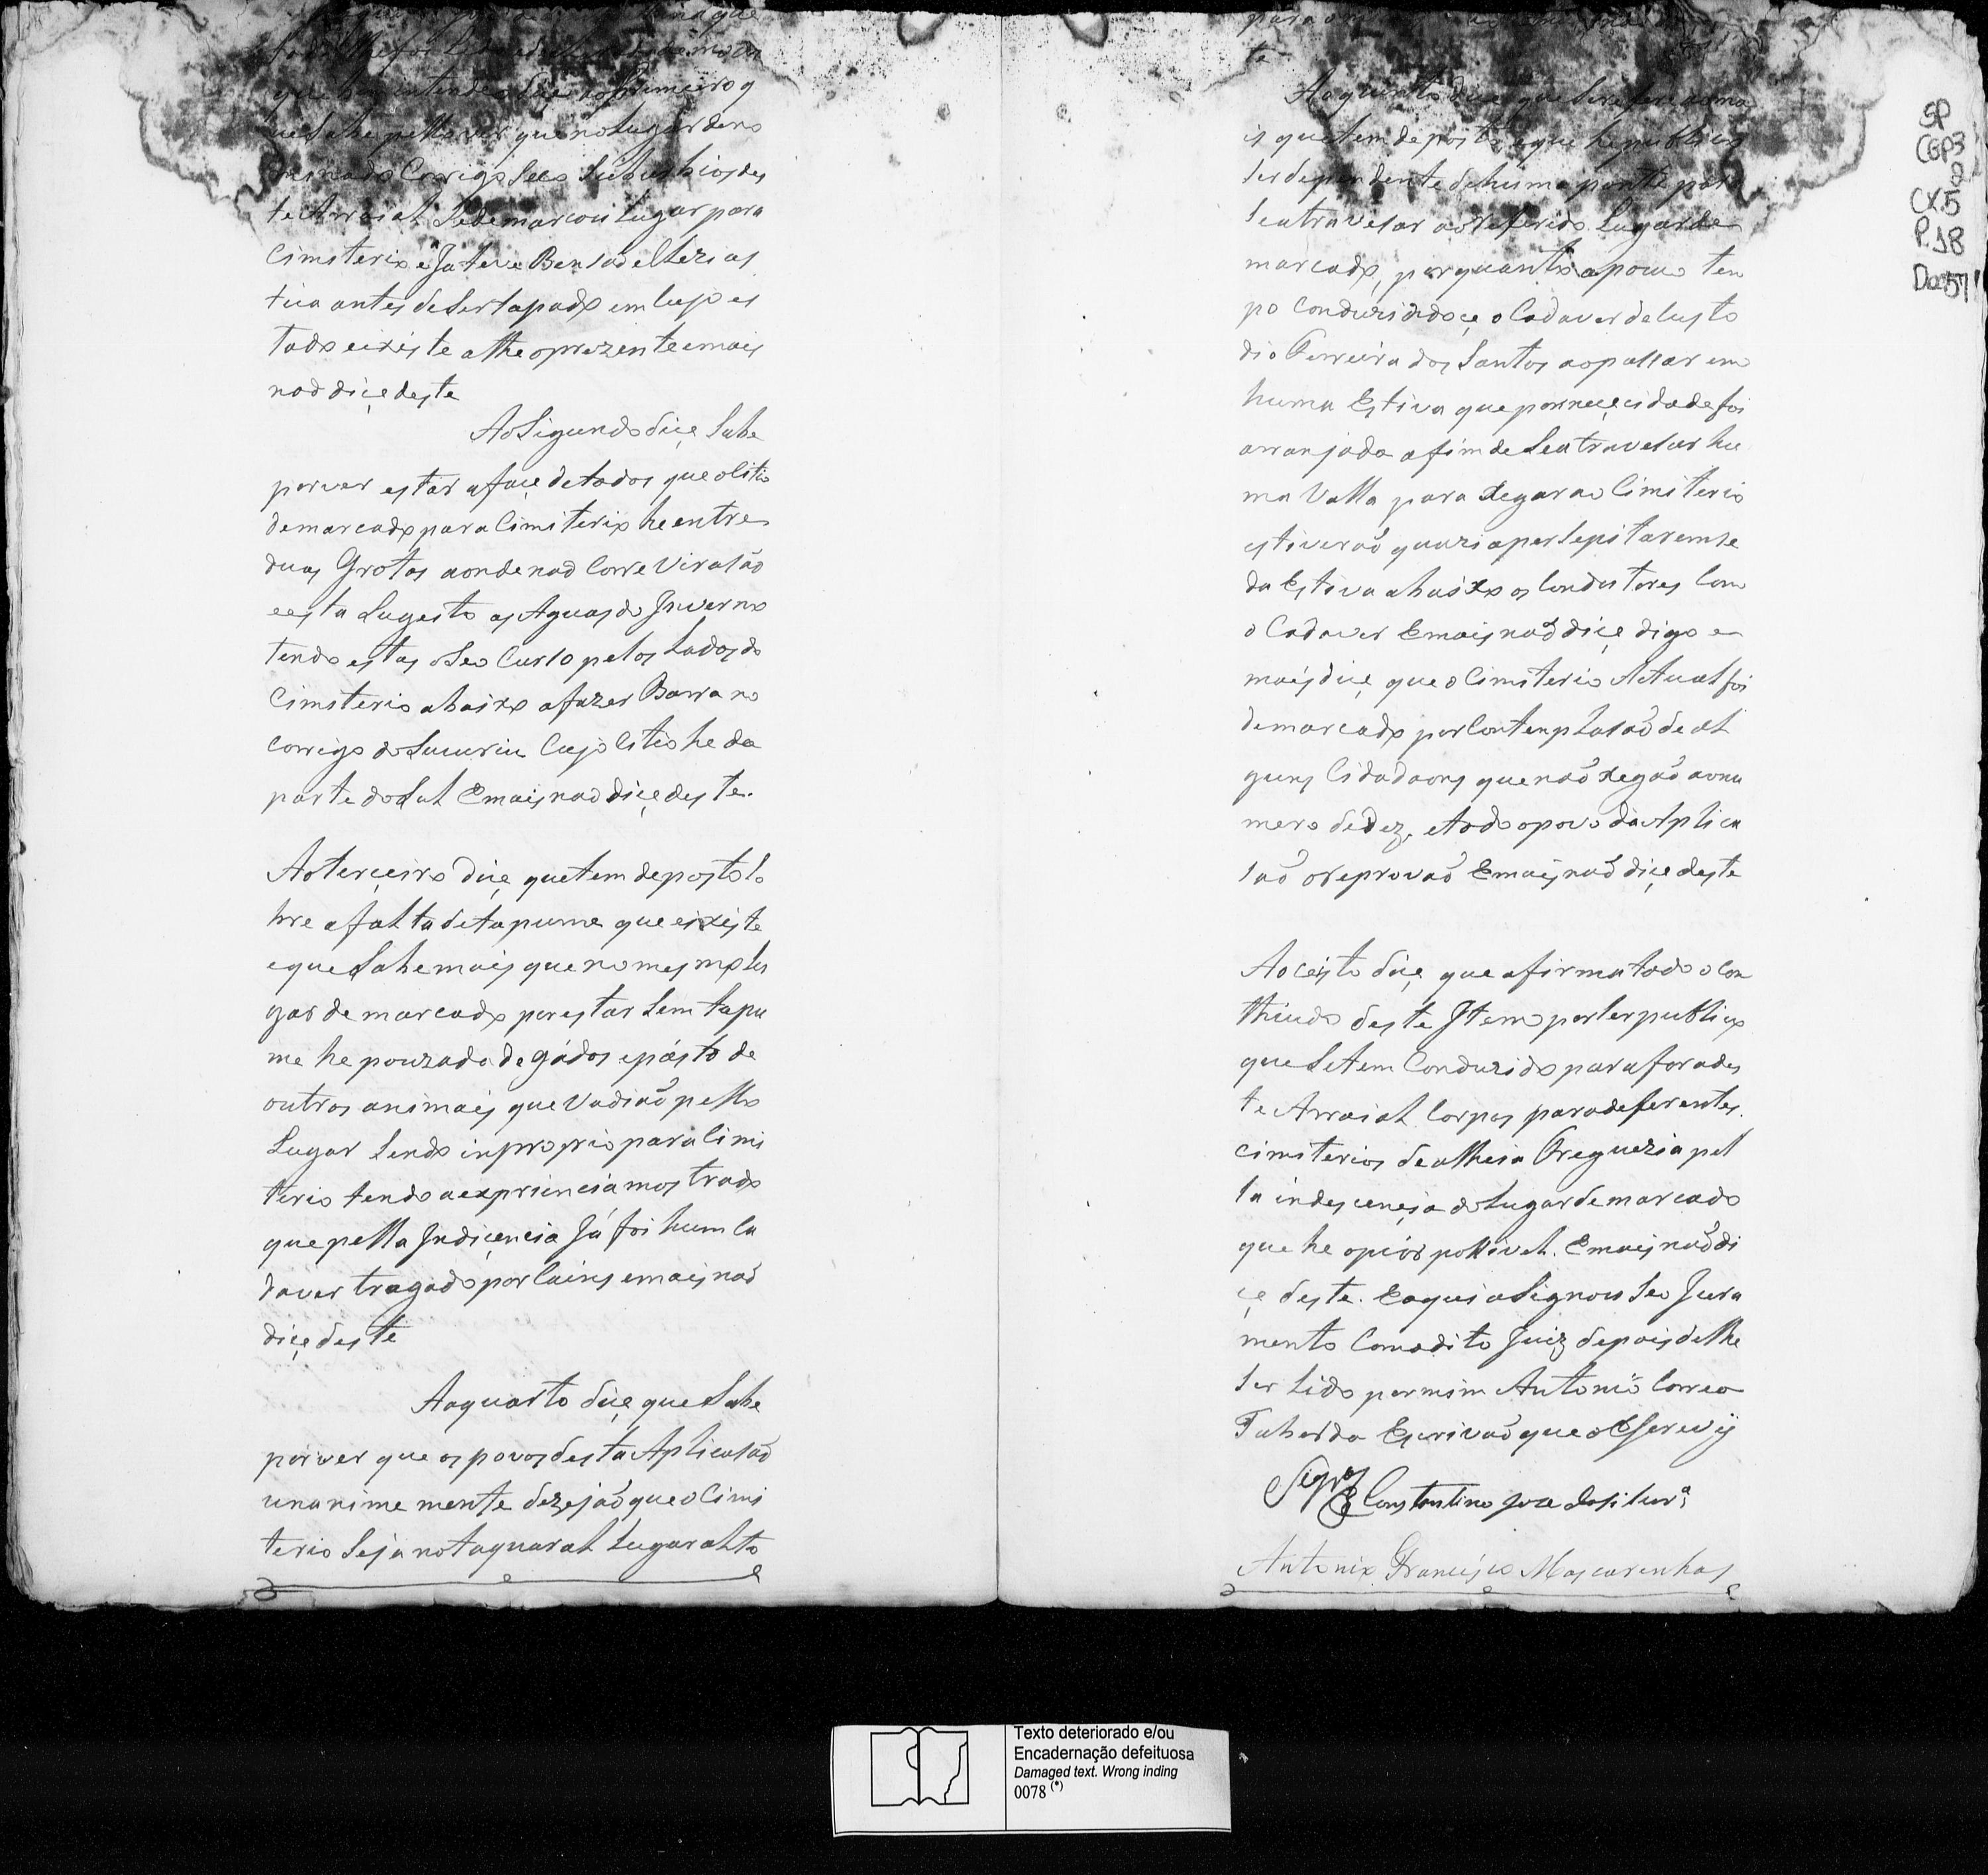 que bem entendeo diçe ao Primeiro q
ue Sabe pello ver que no Lugar deno
minado Corrigo Seco Suburbios des
te Arraial Se demarcou Lugar para
Cimiterio e Já teve Bensaõ eClezias
tica antes de Ser tapado em cujo es
tado eixiste athe o prezente e mais
naõ diçe deste
Ao Sigundo diçe Sabe
por ver estar a façe de todos que o Citio
demarcado para Cimiterio he entre
duas Grotas aonde naõ Corre Virasaõ
e esta Sugeito as Aguas do Inverno
tendo estas o Seo Curso pelos Lados do
Cimiterio abaixo a fazer Barra no
Corrigo do Sucuriu Cujo Citio he da
parte do Sul E mais naõ diçe deste.
Ao terçeiro diçe que tem deposto So
bre a falta de tapume que eixiste
e que Sabe mais que no mesmo Lu
gar demarcado por estar Sem tapu
me he pouzada de gádos e pásto de
outros animais que Vadiaõ pello
Lugar Sendo inproprio para Cimi
terio tendo a expriencia mostrado
que pella Indiçencia Já foi hum Ca
daver tragado por Cains e mais naõ
diçe deste
Ao quarto diçe que Sabe
por ver que os povos desta Aplicasaõ
unanime mente dezejaõ que o Cimi
terio Seja no taquaral Lugar alto
te
Ao quinto diçe que Se refere ao ma
is que tem deposto, e que he publico
Ser dependente de huma ponte para
Se atravesar ao referido Lugar de
marcado, por quanto a pouco tem
po Conduzindoçe o Cadaver de Custo
dio Ferreira dos Santos ao passar em
huma Estiva que por neçecidade foi
arranjada afim de Se atravesar hu
ma Valla para xegar ao Cimiterio
estiveraõ quazi a persepitaremse
da Estiva abaixo os Condutores Com
o Cadaver E mais naõ diçe digo e
mais diçe que o Cimiterio Actual foi
demarcado por Contemplasaõ de al
guns Cidadaons que naõ xegaõ ao nu
mero de dez, e todo o povo da Aplica
saõ o reprovaõ E mais naõ diçe deste
Ao ceisto diçe que afirma todo o Con
thiudo deste Item por Ser publico
que Se tem Conduzido para fora des
te Arraial Corpos para deferentes
Cimiterios de alheia Freguezia pel
la indescençia do Lugar demarcado
que he o piór possivel. E mais naõ di
çe deste. E aqui asignou Seo Jura
mento Com o dito Juiz depois de lhe
Ser Lido por mim Antonio Correa
Taborda Escrivaõ que o Escrevij
Constantino Joze da Silvrª
Antonio Francisco Mascarenhas
SP
CGP3
2
CX.5
P.18
Doc.57
Texto deteriorado e/ou
Encadernação defeituosa
Damaged text. Wrong inding
0078 (*)